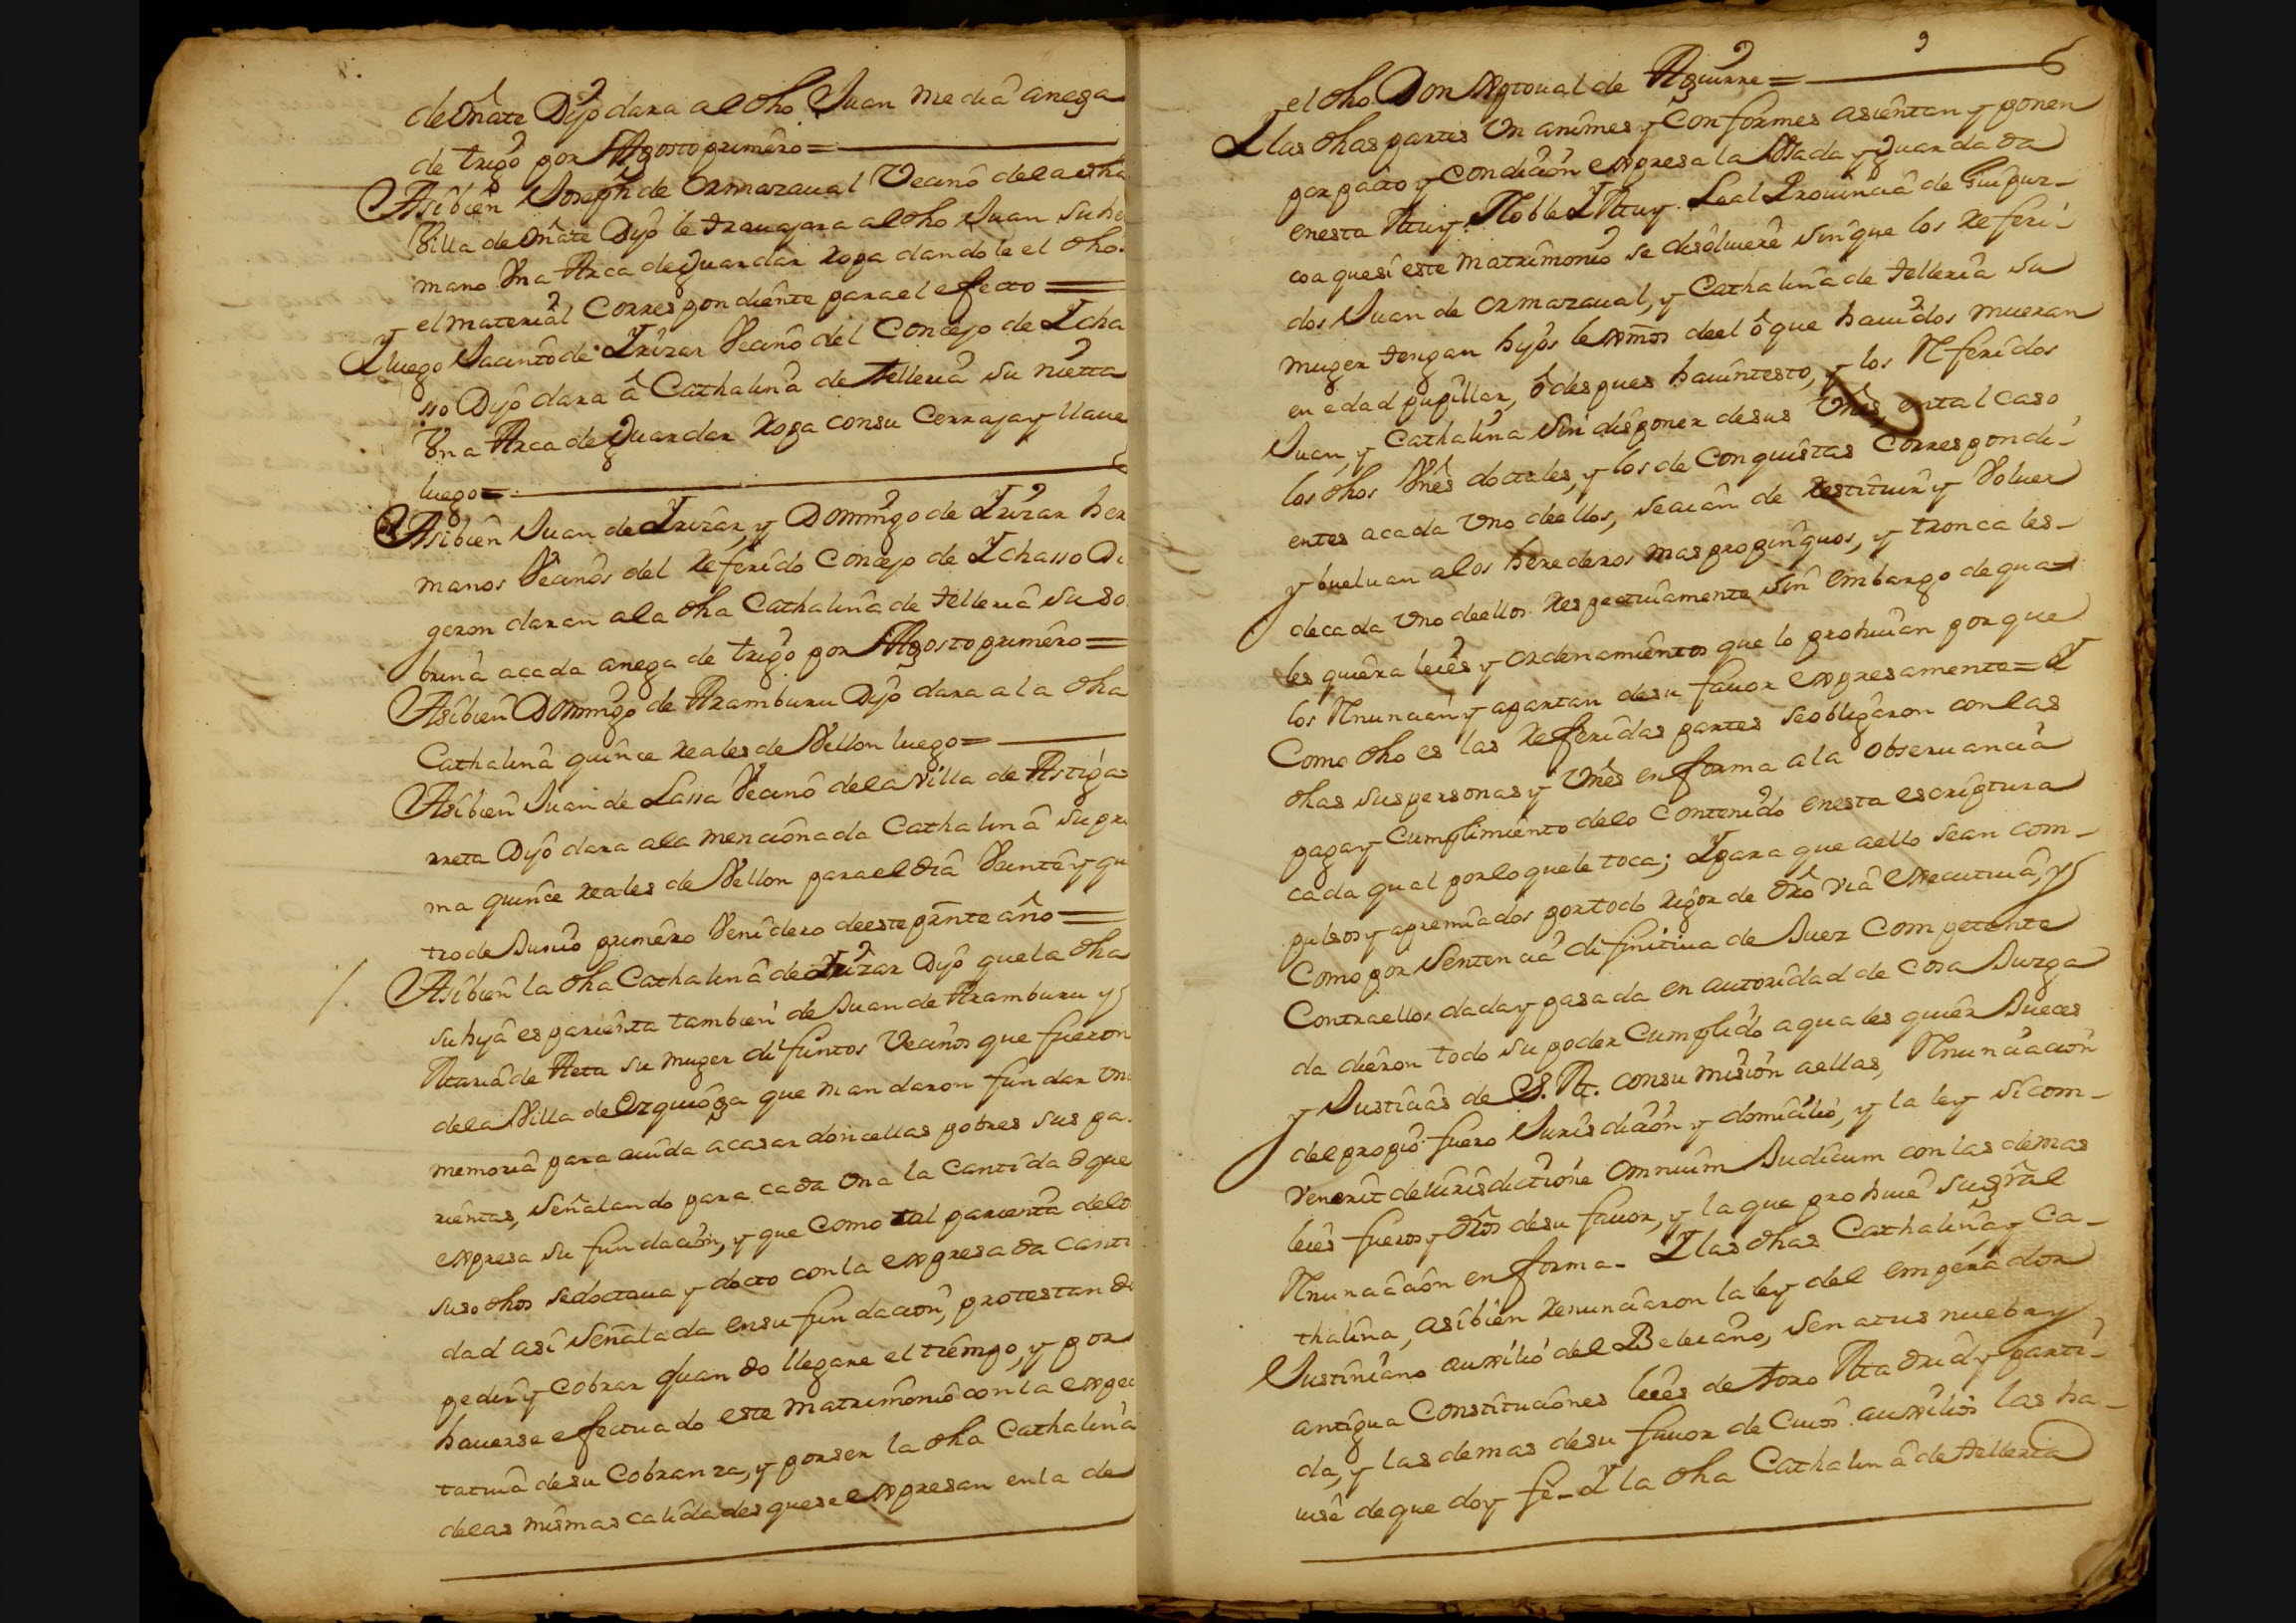 de Oñate Dijo dara al dho Juan media anega
de trigo por Agosto primero =
Asibien Joseph de Ormazaual Vecino de la dha
Villa de Oñate Dijo le trauajara al dho Juan su her
mano Vna Arca de Guardar Ropa dandole el dho.
el material Correspondiente para el efecto =
Y luego Jacinto de Yrizar Vecino del Concejo de Ycha
sso Dijo dara â Cathalina de Telleria su nietta
Vna Arca de Guardar Ropa con su Cerraja y llaue
luego =
Asibien Juan de Yrizar, y Domingo de Yrizar her
manos Vecinos del Referido Concejo de Ychasso Di
geron daran a la dha Cathalina de telleria su so
brina a cada anega de trigo por Agosto primero =
Asibien Domingo de Aramburu Dijo dara a la dha
Cathalina quince Reales de Vellon luego =
Asibien Juan de Lassa Vecino de la Villa de Astiga
rreta Dijo dara a la mencionada Cathalina su pri
ma quince reales de Vellon para el dia Veinte y qu
tro de Junio primero Venidero de este pnte año =
Asibien la dha Cathalina de Yrizar Dijo que la dha
su hija es parienta tambien de Juan de Aramburu y
Maria de Aeta su muger difuntos Vecinos que fueron
de la Villa de Ezquioga que mandaron fundar Vna
memoria para aiuda a casar doncellas pobres sus pa
rientas, Señalando para cada Vna la Cantidad que
expresa su fundacion, y que Como tal parienta de lo
suso dhos se doctaua y docto con la expresada canti
dad asi Señalada en su fundacion, protestando
pedir y Cobrar quando llegare el tiempo, y por
hauerse efectuado este Matrimonio con la expec
tatiua de su Cobranza, y por ser la dha Cathalina
de las mismas calidades que se expresan en la de
9
el dho Don Xptoual de Aguirre = 6
Y las dhas partes Vnanimes y Conformes asientan y ponen
por pacto y Condicion expresa la Vsada y guardada
en esta Muy Noble Y Muy Leal Prouincia de Guipuz-
coa que si este matrimonio se disoluiere sin que los Referi-
dos Juan de Ormazaual, y Cathalina de telleria su
muger tengan hijos lexmos de el ô que hauidos mueran
en edad pupillar, ô despues hauintesto, y los Referidos
Juan, y Cathalina sin disponer de sus Vnes, en tal caso
los dhos Vnes doctales, y los de Conquistas Correspondi-
entes a cada Vno de ellos, se aian de Restituir y Voluer
y bueluan a los herederos mas propinquos, y troncales
de cada Vno de ellos respectiuamente sin embargo de qua
les quiera leies y ordenamientos que lo prohiuan porque
los Renuncian y apartan de su fauor expresamente = Y
Como dho es las Referidas partes se obligaron con las
dhas sus personas y Vnes en forma a la obseruancia
paga y Cumplimiento de lo Contenido en esta escriptura
cada qual por lo que le toca; Y para que a ello sean com-
pulsos y apremiados por todo rigor de dro via executiua, y
Como por Sentencia difinitiua de Juez Competente
Contra ellos dada y pasada en autoridad de Cosa Juzga
da dieron todo su poder Cumplido a quales quier Jueces
y Justicias de S. M. con su misión a ellas, Renunciacion
del propio fuero Jurisdicion y domicilio, y la ley sicom-
venerit de iurisdictione omnium Judicum con las demas
leies fueros y dros de su fauor, y la que prohiue su gral
Renunciacion en forma. Y las dhas Cathalina y Ca-
thalina, asibien renunciaron la ley del emperador
Justiniano auxilio del Beleiano, senatus nueba y
antigua Constituciones leies de toro Madrid y parti-
da, y las demas de su fauor de Cuios auxilios las ha-
uisê de que doy fe. Y la dha Cathalina de telleria